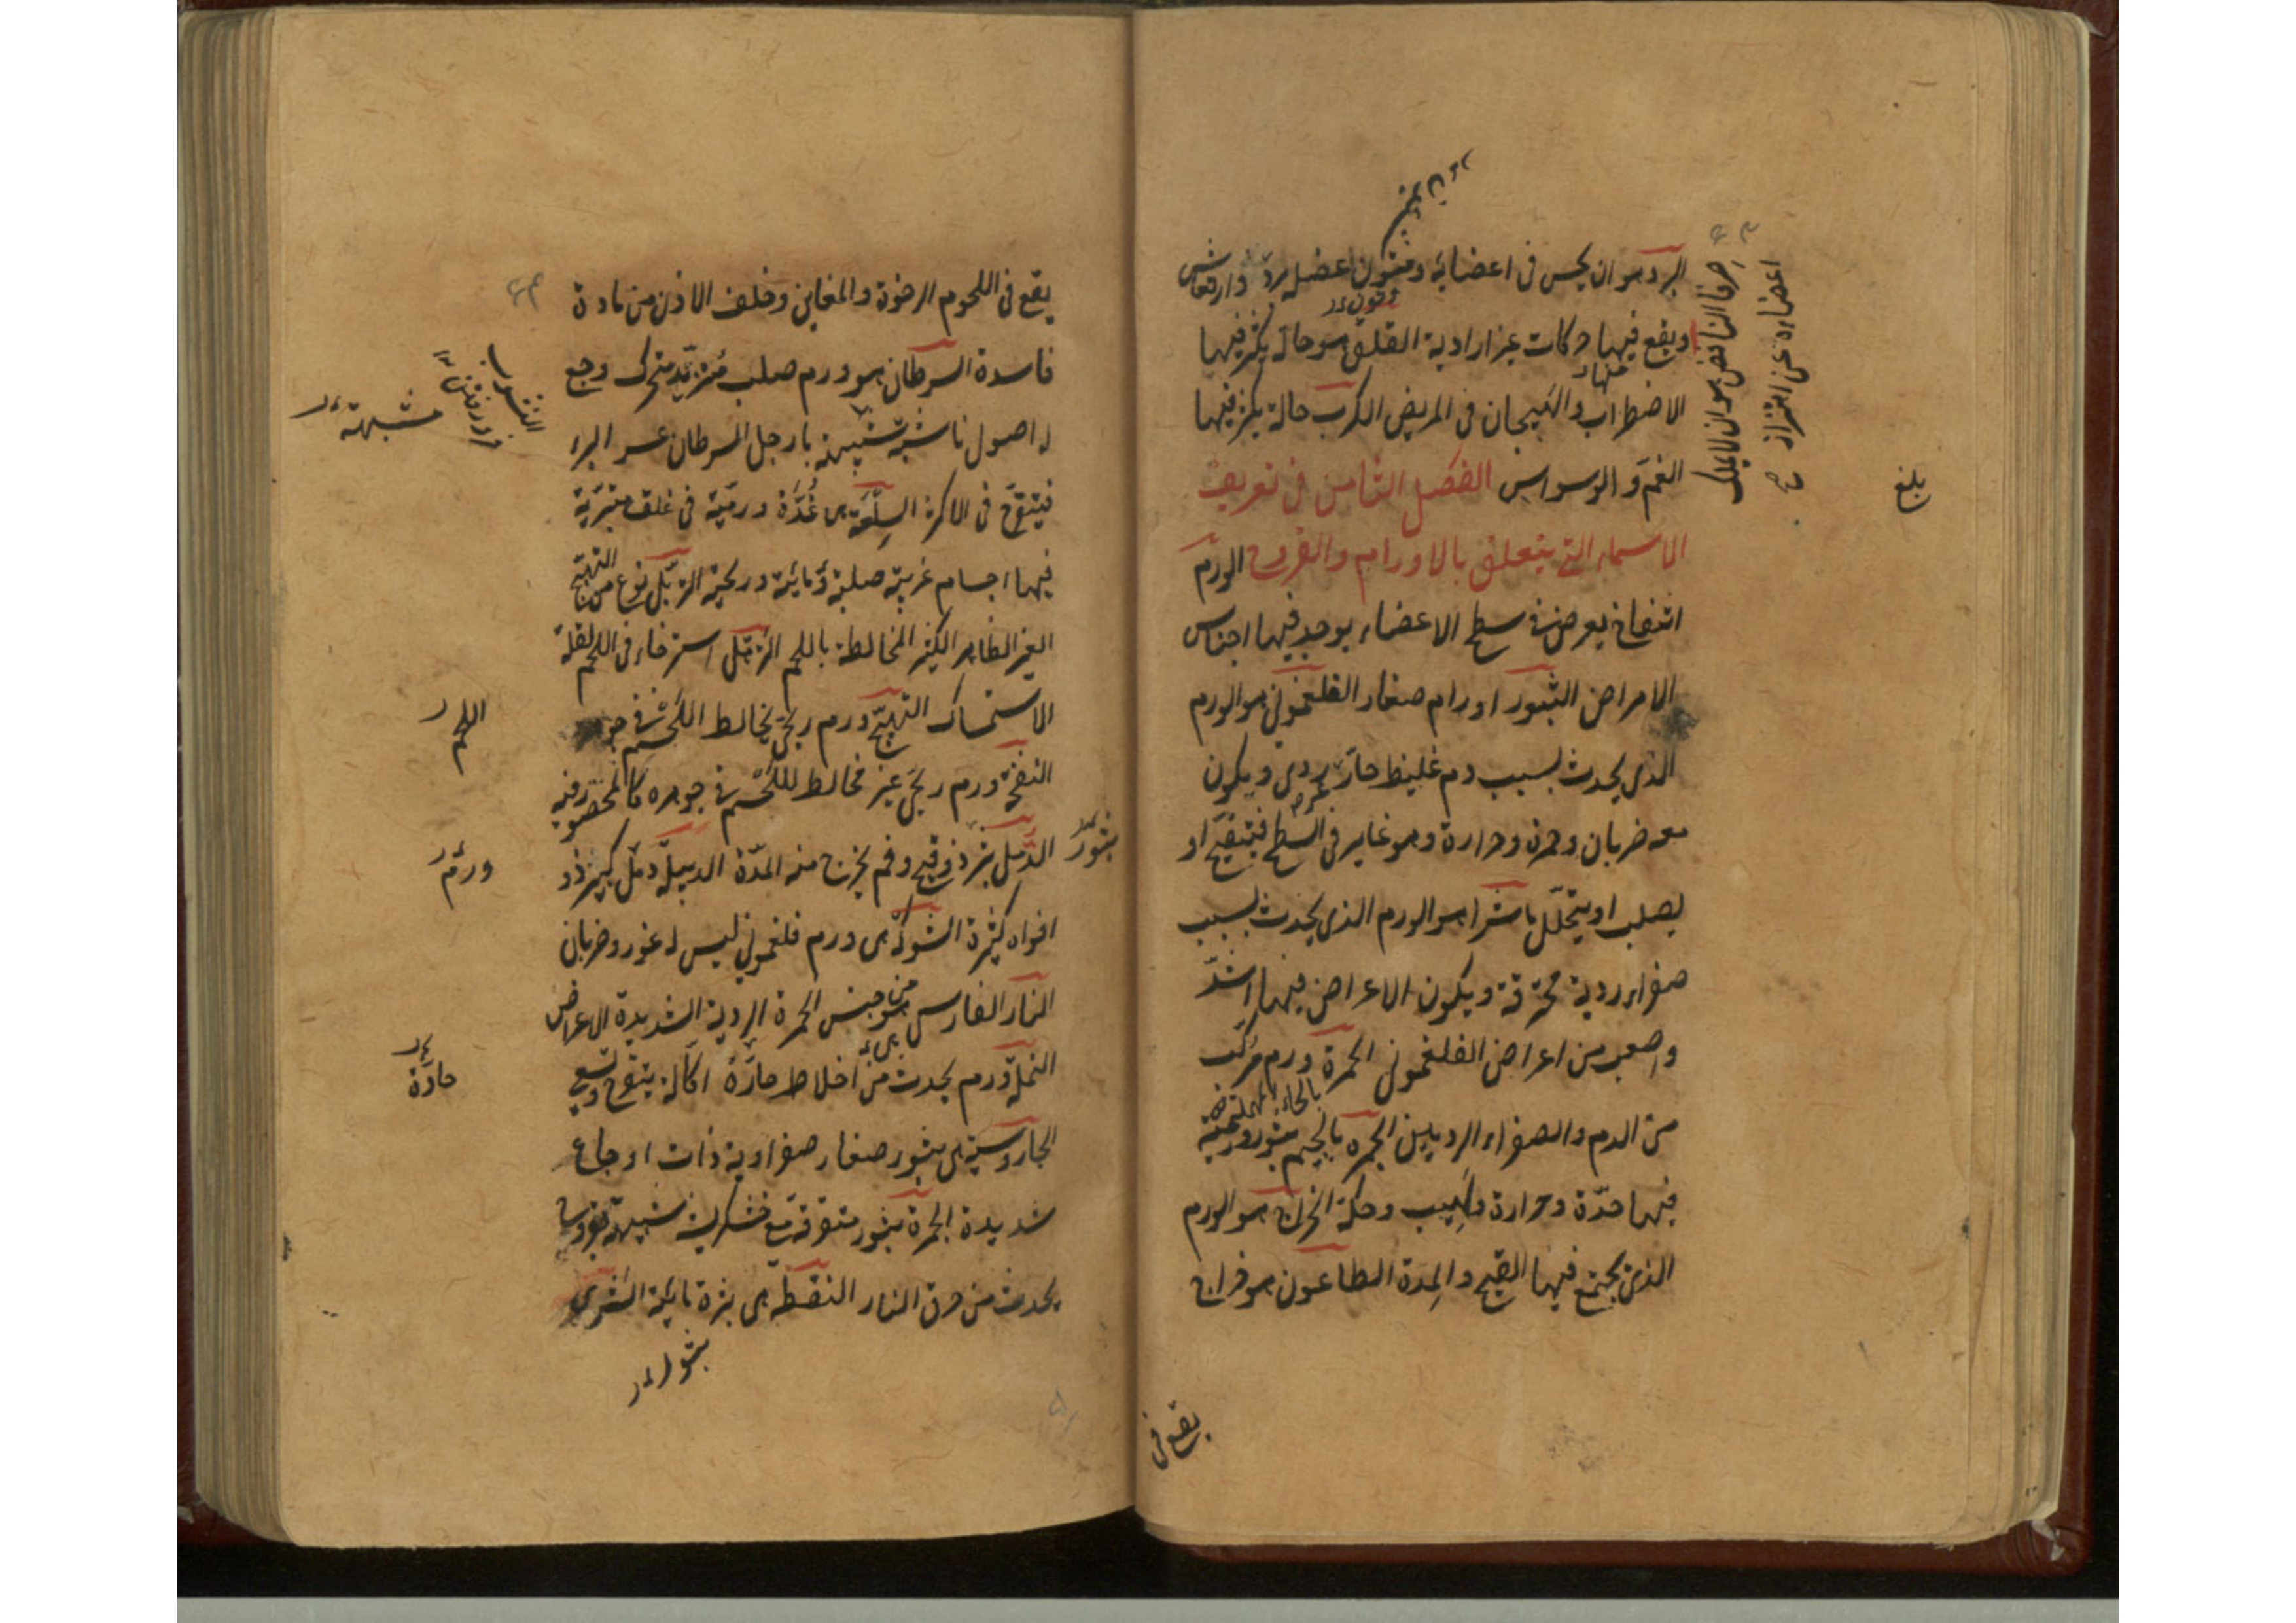 البرد هو ان يحس فى اعضائه و متون اعضله برد وارتعاش
ويقع فيها حركات غير ارادية القلق هو حالة يكثر فيها
الاضطراب والهيجان فى المريض الكرب حالة يكثر فيها
الغم و الوسواس الفصل الثامن فى تعريف
الاسماء التى يتعلق بالاورام والقروح الورم
انتفاخ يعرض فى سطح الاعضاء يوجد فيها اجناس
الامراض البثور اورام صغار الفلغمونى هو الورم
الذى يحدث بسبب دم غليظ حار ردى ويكون
معه ضربان وحمرة وحرارة وهو غاير فى السطح فيتقيح او
يصلب او يتحلل ماشرا هو الورم الذى يحدث بسبب
صفراء ردية محترقة ويكون الاعراض فيها اشد
واصعب من اعراض الفلغمونى الحمرة ورم مركب
بالحاء المهملة
من الدم والصفراء الرديين الجمره بالجيم بثور ورمية
فيها حدة وحرارة ولهيب وحكة الخراج هو الورم
الذى يجتمع فيها القيح والمدة الطاعون هو خراج
يقع فى
حرقا النافض هو ان لا يملك
اعضاءه عن اهتزاز صح
بلغ
يقع فى اللحوم الرخوة والمغابن وخلف الاذن من مادة
فاسدة السرطان هو ورم صلب متزيد متحرك وجع
له اصول ناشبة شبيهة بارجل السرطان عسر البرء
فيتقرح فى الاكثر السلعة هى غدة ورمية فى غلف متبرية
فيها اجسام غريبة صلبة ومائية وريحية التربل نوع من التهيج
الغير الظاهر الكثير المخالطة باللحم الترهل استرخاء فى اللحم لقلة
الاستمساك التهيج ورم ريحى يخالط اللحم فى جو
النفخة ورم ريحى غير مخالط للحم فى جوهره كالمحصور فيه
الدمل بثر ذو قيح وفم يخرج منه المدة الدبيلة دمل كبير ذو
افواه كثيرة الشوكة هى ورم فلغمونى ليس له غور وضربان
النار الفارسى هو من جنس الحمرة الردية الشديدة الاعراض
النملة ورم يحدث من اخلاط حارة اكالة يتقرح ويسعى
الجاورسية هى بثور صغار صفراوية ذات اوجاع
شديدة الجمرة بثور متفرقة مع خشكريشة شبيهة بقروح
يحدث من حرق النار النفطة هى بثرة مائية الشرى
مشبهة
اللحم
ورم
حادة
بثور
بثور